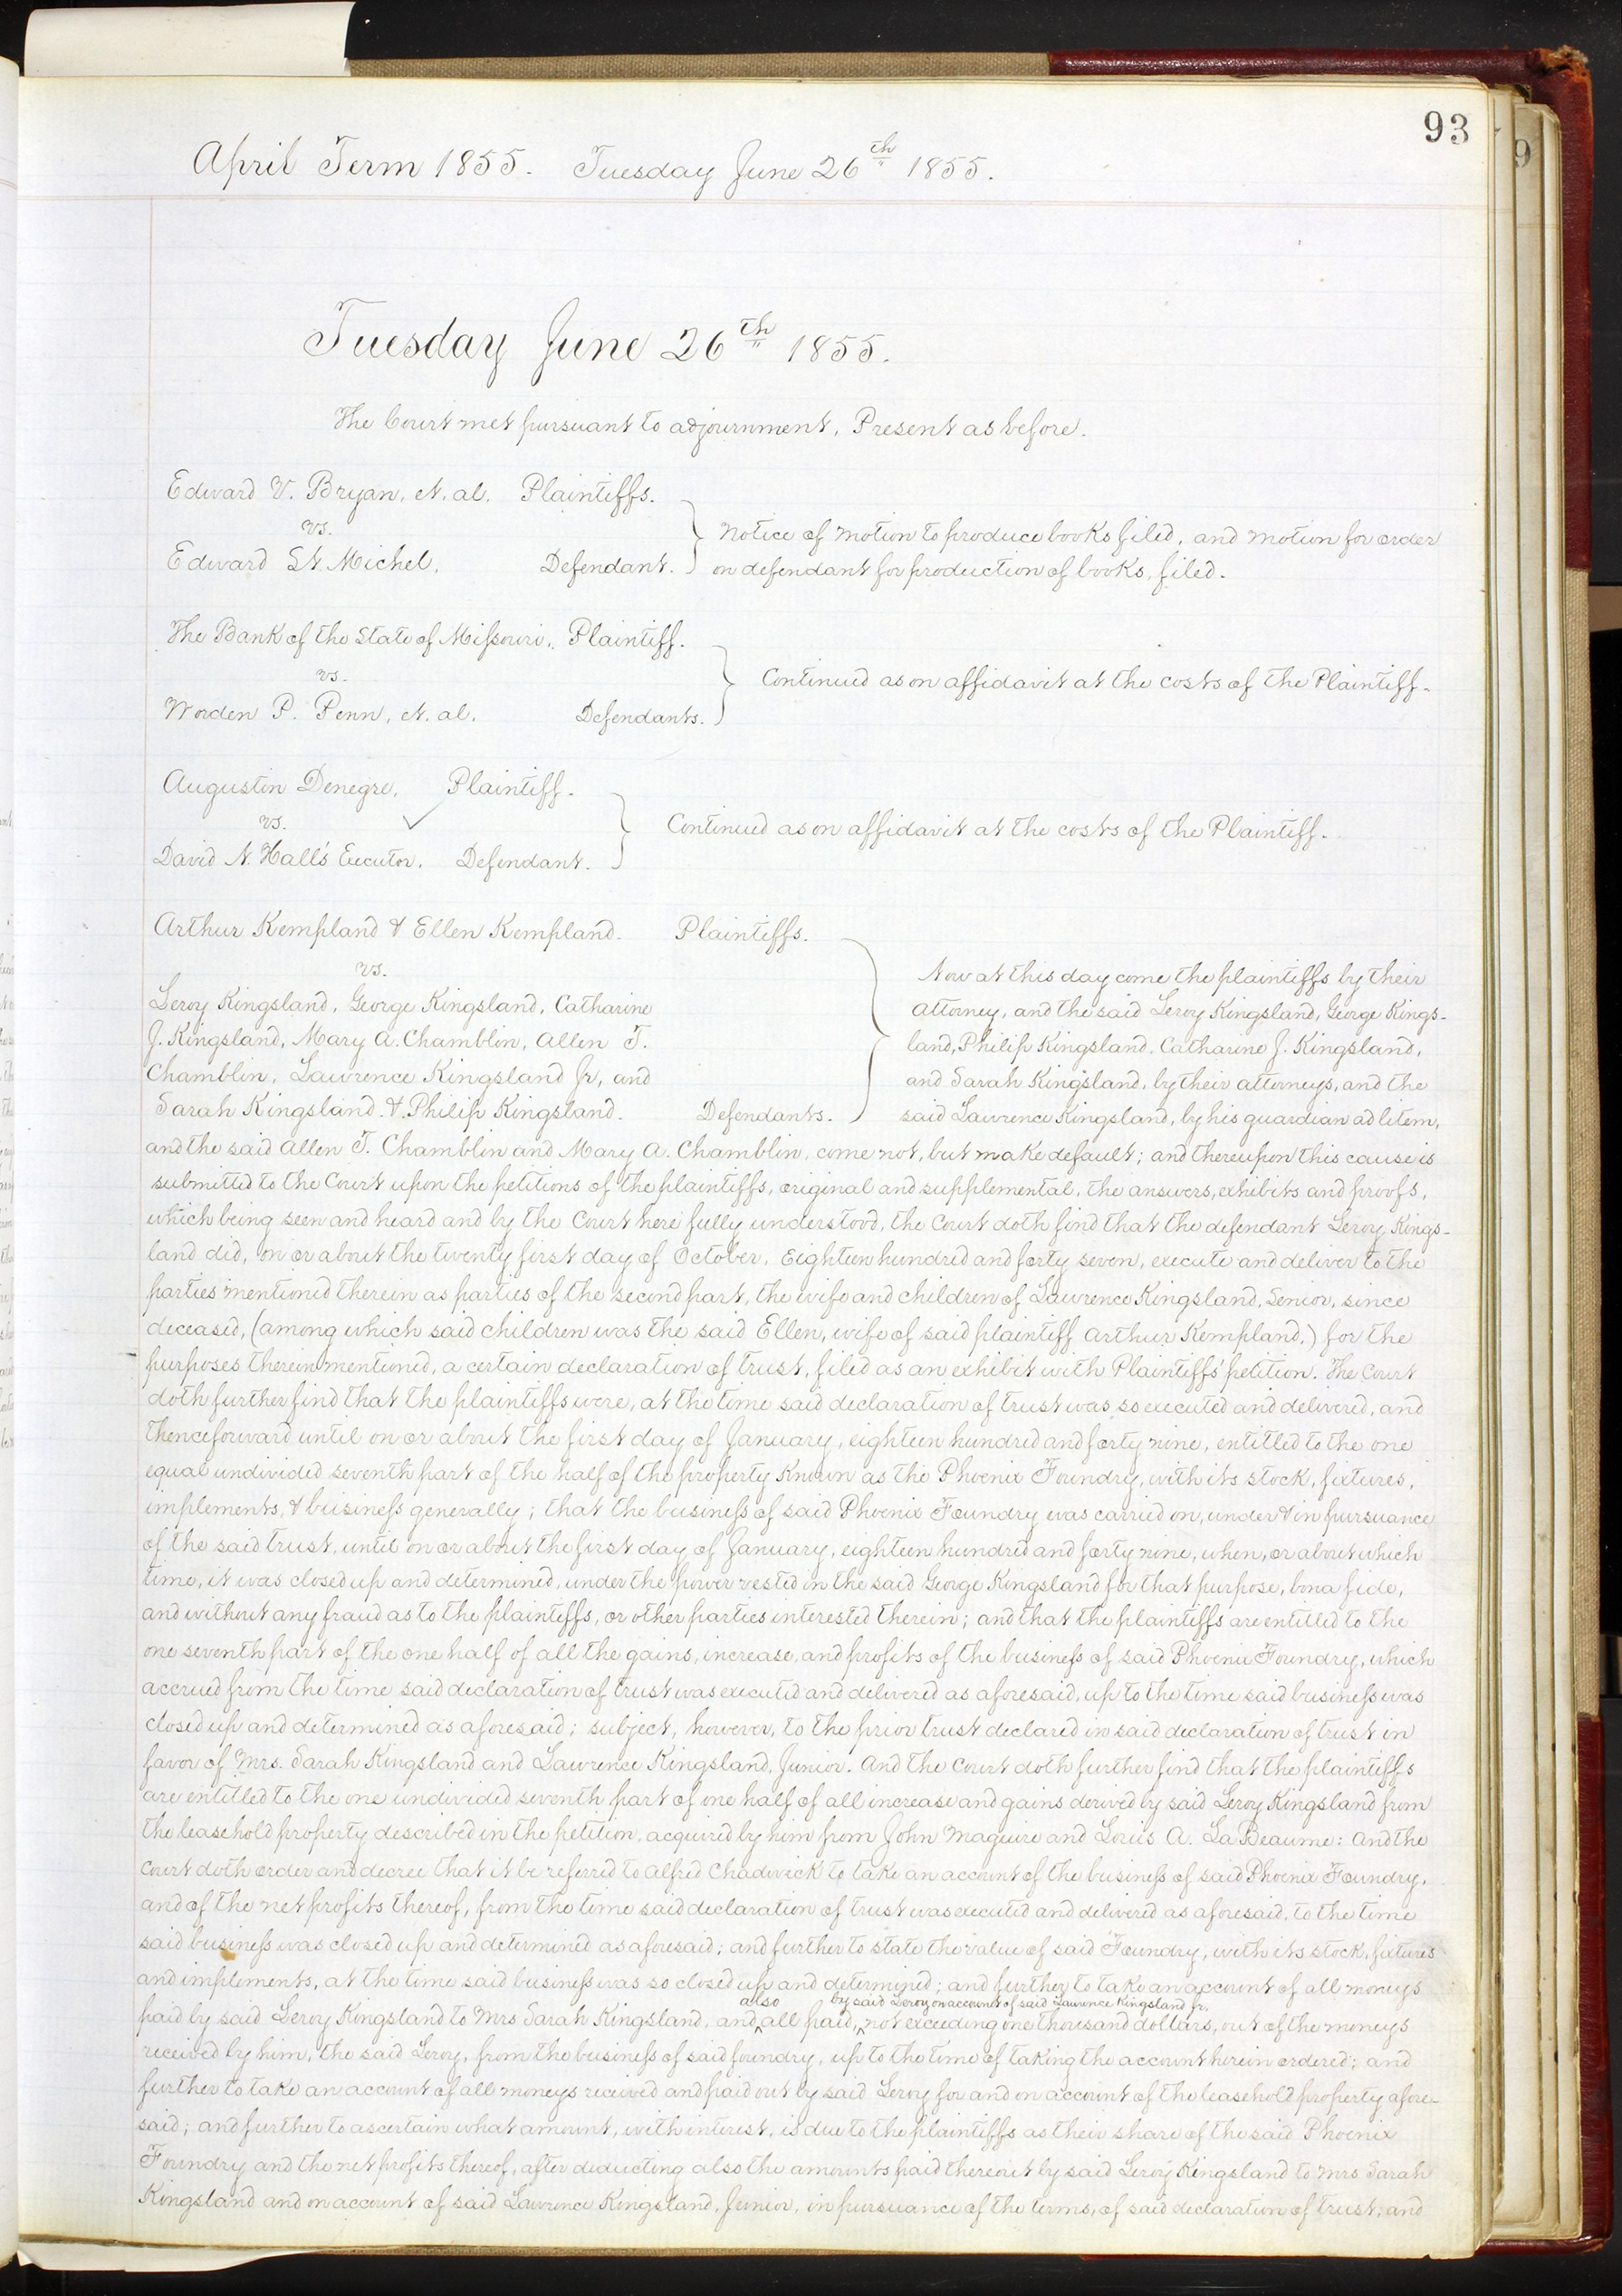 93
April Term 1855. Tuesday June 26th 1855.
Tuesday June 26th 1855.
The Court met pursuant to adjournment, Present as before.
Edward V. Bryan, et. al. Plaintiffs.
vs.
Edward St Michel. Defendant.
Notice of Motion to produce books filed, and motion for order
on defendant for production of books, filed.
The Bank of the State of Missouri, Plaintiff.
vs.
Worden P. Penn, et. al. Defendants.
Continued as on affidavit at the costs of the Plaintiff.
Augustin Denegre, Plaintiff.
vs.
David N. Hall's Executor. Defendant.
Continued as on affidavit at the costs of the Plaintiff.
Arthur Kempland & Ellen Kempland. Plaintiffs.
vs.
Leroy Kingsland, George Kingsland, Catharine
J. Kingsland, Mary A. Chamblin, Allen T.
Chamblin, Lawrence Kingsland Jr, and
Sarah Kingsland. & Philip Kingsland. Defendants.
Now at this day come the plaintiffs by their
attorney, and the said Leroy Kingsland, George Kings-
land, Philip Kingsland, Catharine J. Kingsland,
and Sarah Kingsland, by their attorneys, and the
said Lawrence Kingsland, by his guardian ad litem,
and the said Allen T. Chamblin and Mary A. Chamblin, come not, but make default; and thereupon this cause is
submitted to the Court upon the petitions of the plaintiffs, original and supplemental, the answers, exhibits and proofs,
which being seen and heard and by the Court here fully understood, the Court doth find that the defendant Leroy Kings-
land did, on or about the twenty first day of October, Eighteen hundred and forty seven, execute and deliver to the
parties mentioned therein as parties of the second part, the wife and children of Lawrence Kingsland, Senior, since
deceased, (among which said children was the said Ellen, wife of said plaintiff Arthur Kempland,) for the
purposes therein mentioned, a certain declaration of trust, filed as an exhibit with Plaintiffs' petition. The Court
doth further find that the plaintiffs were, at the time said declaration of trust was so executed and delivered, and
thenceforward until on or about the first day of January, eighteen hundred and forty nine, entitled to the one
equal undivided seventh part of the half of the property known as the Phoenix Foundry, with its stock, fixtures,
implements, & business generally; that the business of said Phoenix Foundry was carried on, under & in pursuance
of the said trust, until on or about the first day of January, eighteen hundred and forty nine, when, or about which
time, it was closed up and determined, under the power vested in the said George Kingsland for that purpose, bona fide,
and without any fraud as to the plaintiffs, or other parties interested therein; and that the plaintiffs are entitled to the
one seventh part of the one half of all the gains, increase, and profits of the business of said Phoenix Foundry, which
accrued from the time said declaration of trust was executed and delivered as aforesaid, up to the time said business was
closed up and determined as aforesaid; subject, however, to the prior trust declared in said declaration of trust in
favor of Mrs. Sarah Kingsland and Lawrence Kingsland, Junior. And the Court doth further find that the plaintiffs
are entitled to the one undivided seventh part of one half of all increase and gains derived by said Leroy Kingsland from
the leasehold property described in the petition, acquired by him from John Maguire and Louis A. LaBeaume: And the
Court doth order and decree that it be referred to Alfred Chadwick to take an account of the business of said Phoenix Foundry,
and of the net profits thereof, from the time said declaration of trust was executed and delivered as aforesaid, to the time
said business was closed up and determined as aforesaid; and further to state the value of said Foundry, with its stock, fixtures
and implements, at the time said business was so closed up and determined; and further to take an account of all moneys
also by said Leroy on account of said Lawrence Kingsland Jr.
paid by said Leroy Kingsland to Mrs Sarah Kingsland, and ^ all paid, ^ not exceeding one thousand dollars, out of the moneys
received by him, the said Leroy, from the business of said foundry, up to the time of taking the account herein ordered; and
further to take an account of all moneys received and paid out by said Leroy for and on account of the leasehold property afore-
said; and further to ascertain what amount, with interest, is due to the plaintiffs as their share of the said Phoenix
Foundry and the net profits thereof, after deducting also the amounts paid thereout by said Leroy Kingsland to Mrs Sarah
Kingsland and on account of said Lawrence Kingsland, Junior, in pursuance of the terms, of said declaration of trust; and